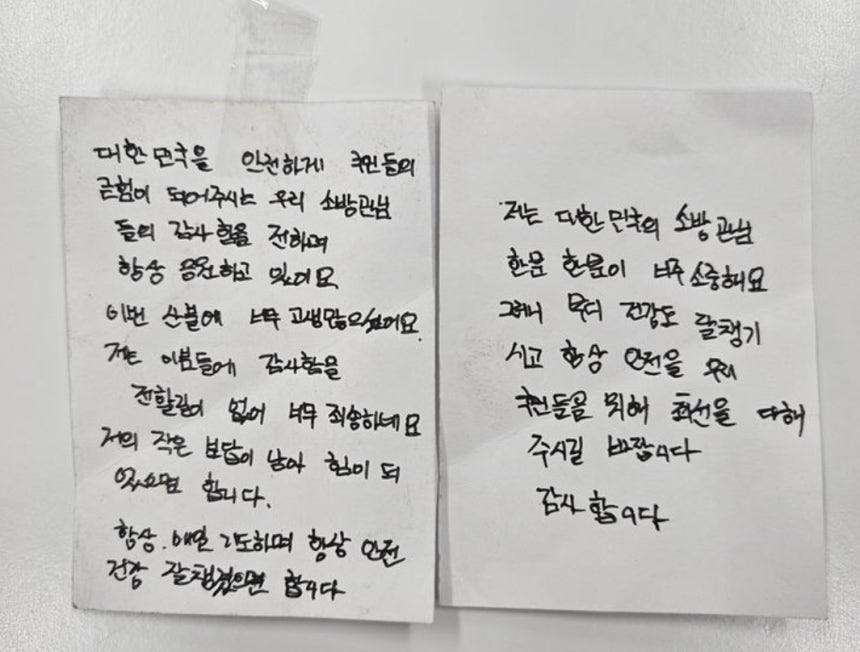 대한민국을 안전하게 국민들의
금험이 되어주시는 우리 소방관님
들의 감사함을 전하며
항상 응원하고 있어요
이번 산불에 너무 고생많으셨어요
저는 이분들에 감사함을
전할길이 없어 너무 죄송하네요
저의 작은 보답이 남아 힘이 되
었으면 합니다.
항상. 매일 기도하며 항상 안전
건강 잘챙겼으면 합니다
저는 대한민국의 소방관님
한분 한분이 너무 소중해요
그러니 부디 건강도 잘챙기
시고 항상 안전을 우리
국민들을 위해 최선을 다해
주시길 바랍니다
감사합니다